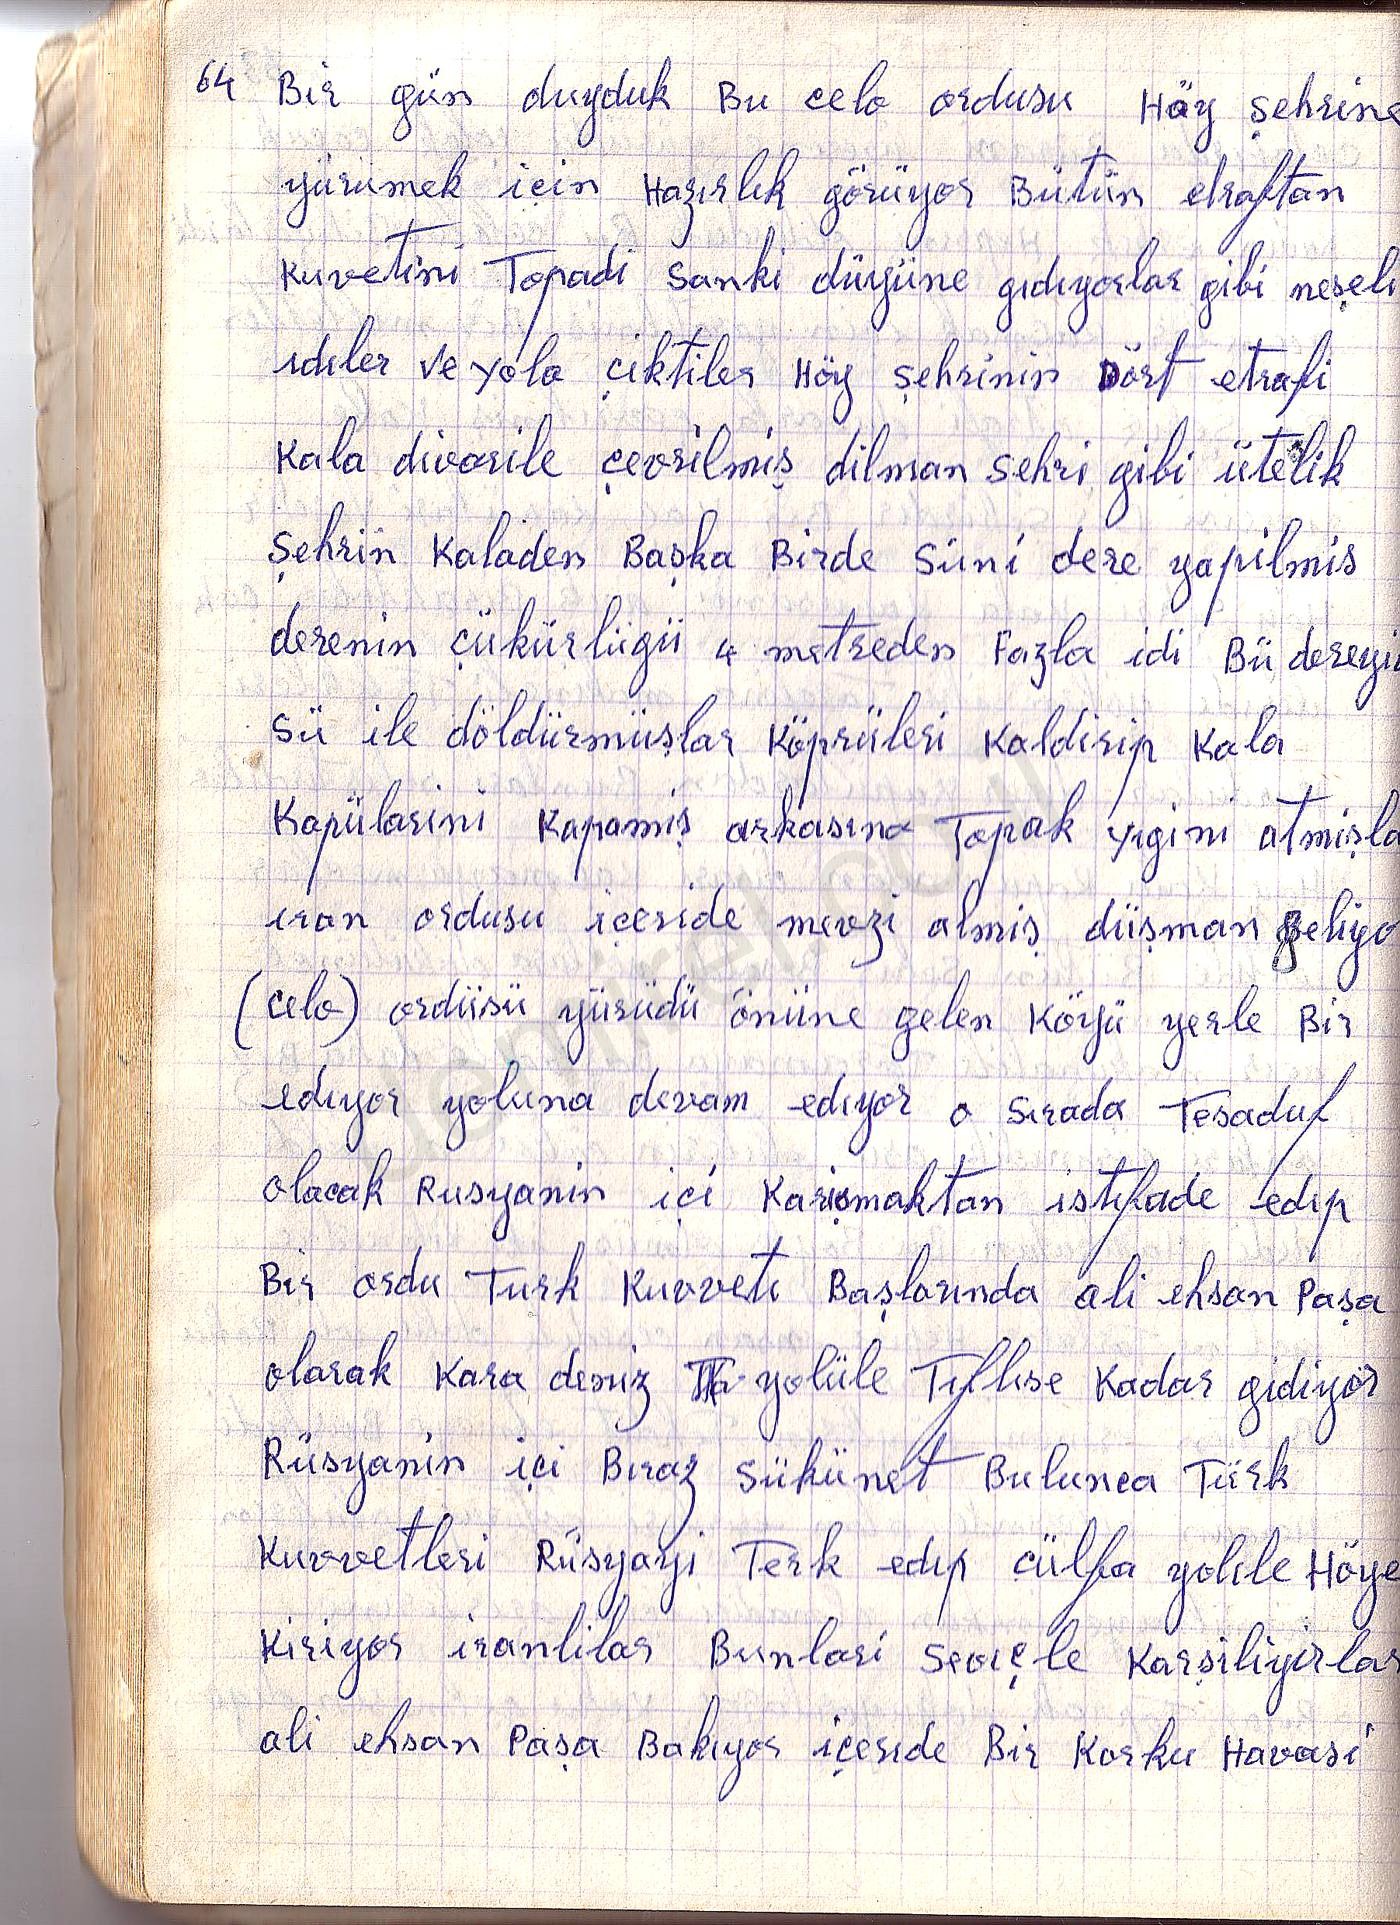 64 Bir gün duyduk Bu celo ordusu Höy şehrine
yürümek için Hazırlık görüyor Bütün etraftan
Kuvetini Topadi Sanki düyüne gıdıyorlar gibi neşeli
ıdıler Ve yola çiktiler Höy şehrinin Dört etrafi
Kala divarile çevrilmiş dilman sehri gibi ütelik
Şehrin Kaladen Başka Birde Süni dere yapilmis
derenin çükürlügü 4 metreden Fazla idi Bü dereyi
Sü ile döldürmüşlar Köprüleri Kaldirip Kala
Kapülarini Kapamiş arkasına Topak yıgini atmişla
ıran ordusu içeride mevzi almiş düşman geliyo
(celo) ordüsü yürüdü önüne gelen Köyü yerle Bir
edıyor yoluna devam edıyor o Sırada Tesaduf
olacak Rusyanin içi Karişmaktan istıfade edıp
Bir ordu Turk Kuvvetı Başlarında ali ehsan Paşa
olarak Kara deniz yolüle Tıflıse Kadar gidiyor
Rüsyanin içi Bıraz Sükünet Bulunca Türk
Kuvvetleri Rüsyayi Terk edıp cülfa yolıle Höye
Kiriyor iranlilar Bunlari Sevıçle Karşiliyirlar
ali ehsan Paşa Bakıyor içerıde Bir Korku Havasi